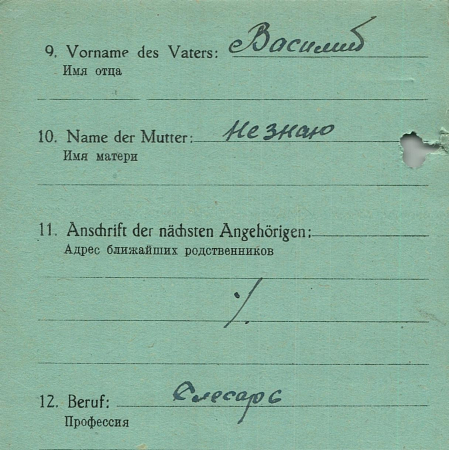 9. Vorname des Vaters: Василий
Имя отца
10. Name der Mutter: не знаю
Имя матери
11. Anschrift der nächsten Angehörigen:
Адрес ближайших родственников
·/.
12. Beruf: Слесарь
Профессия